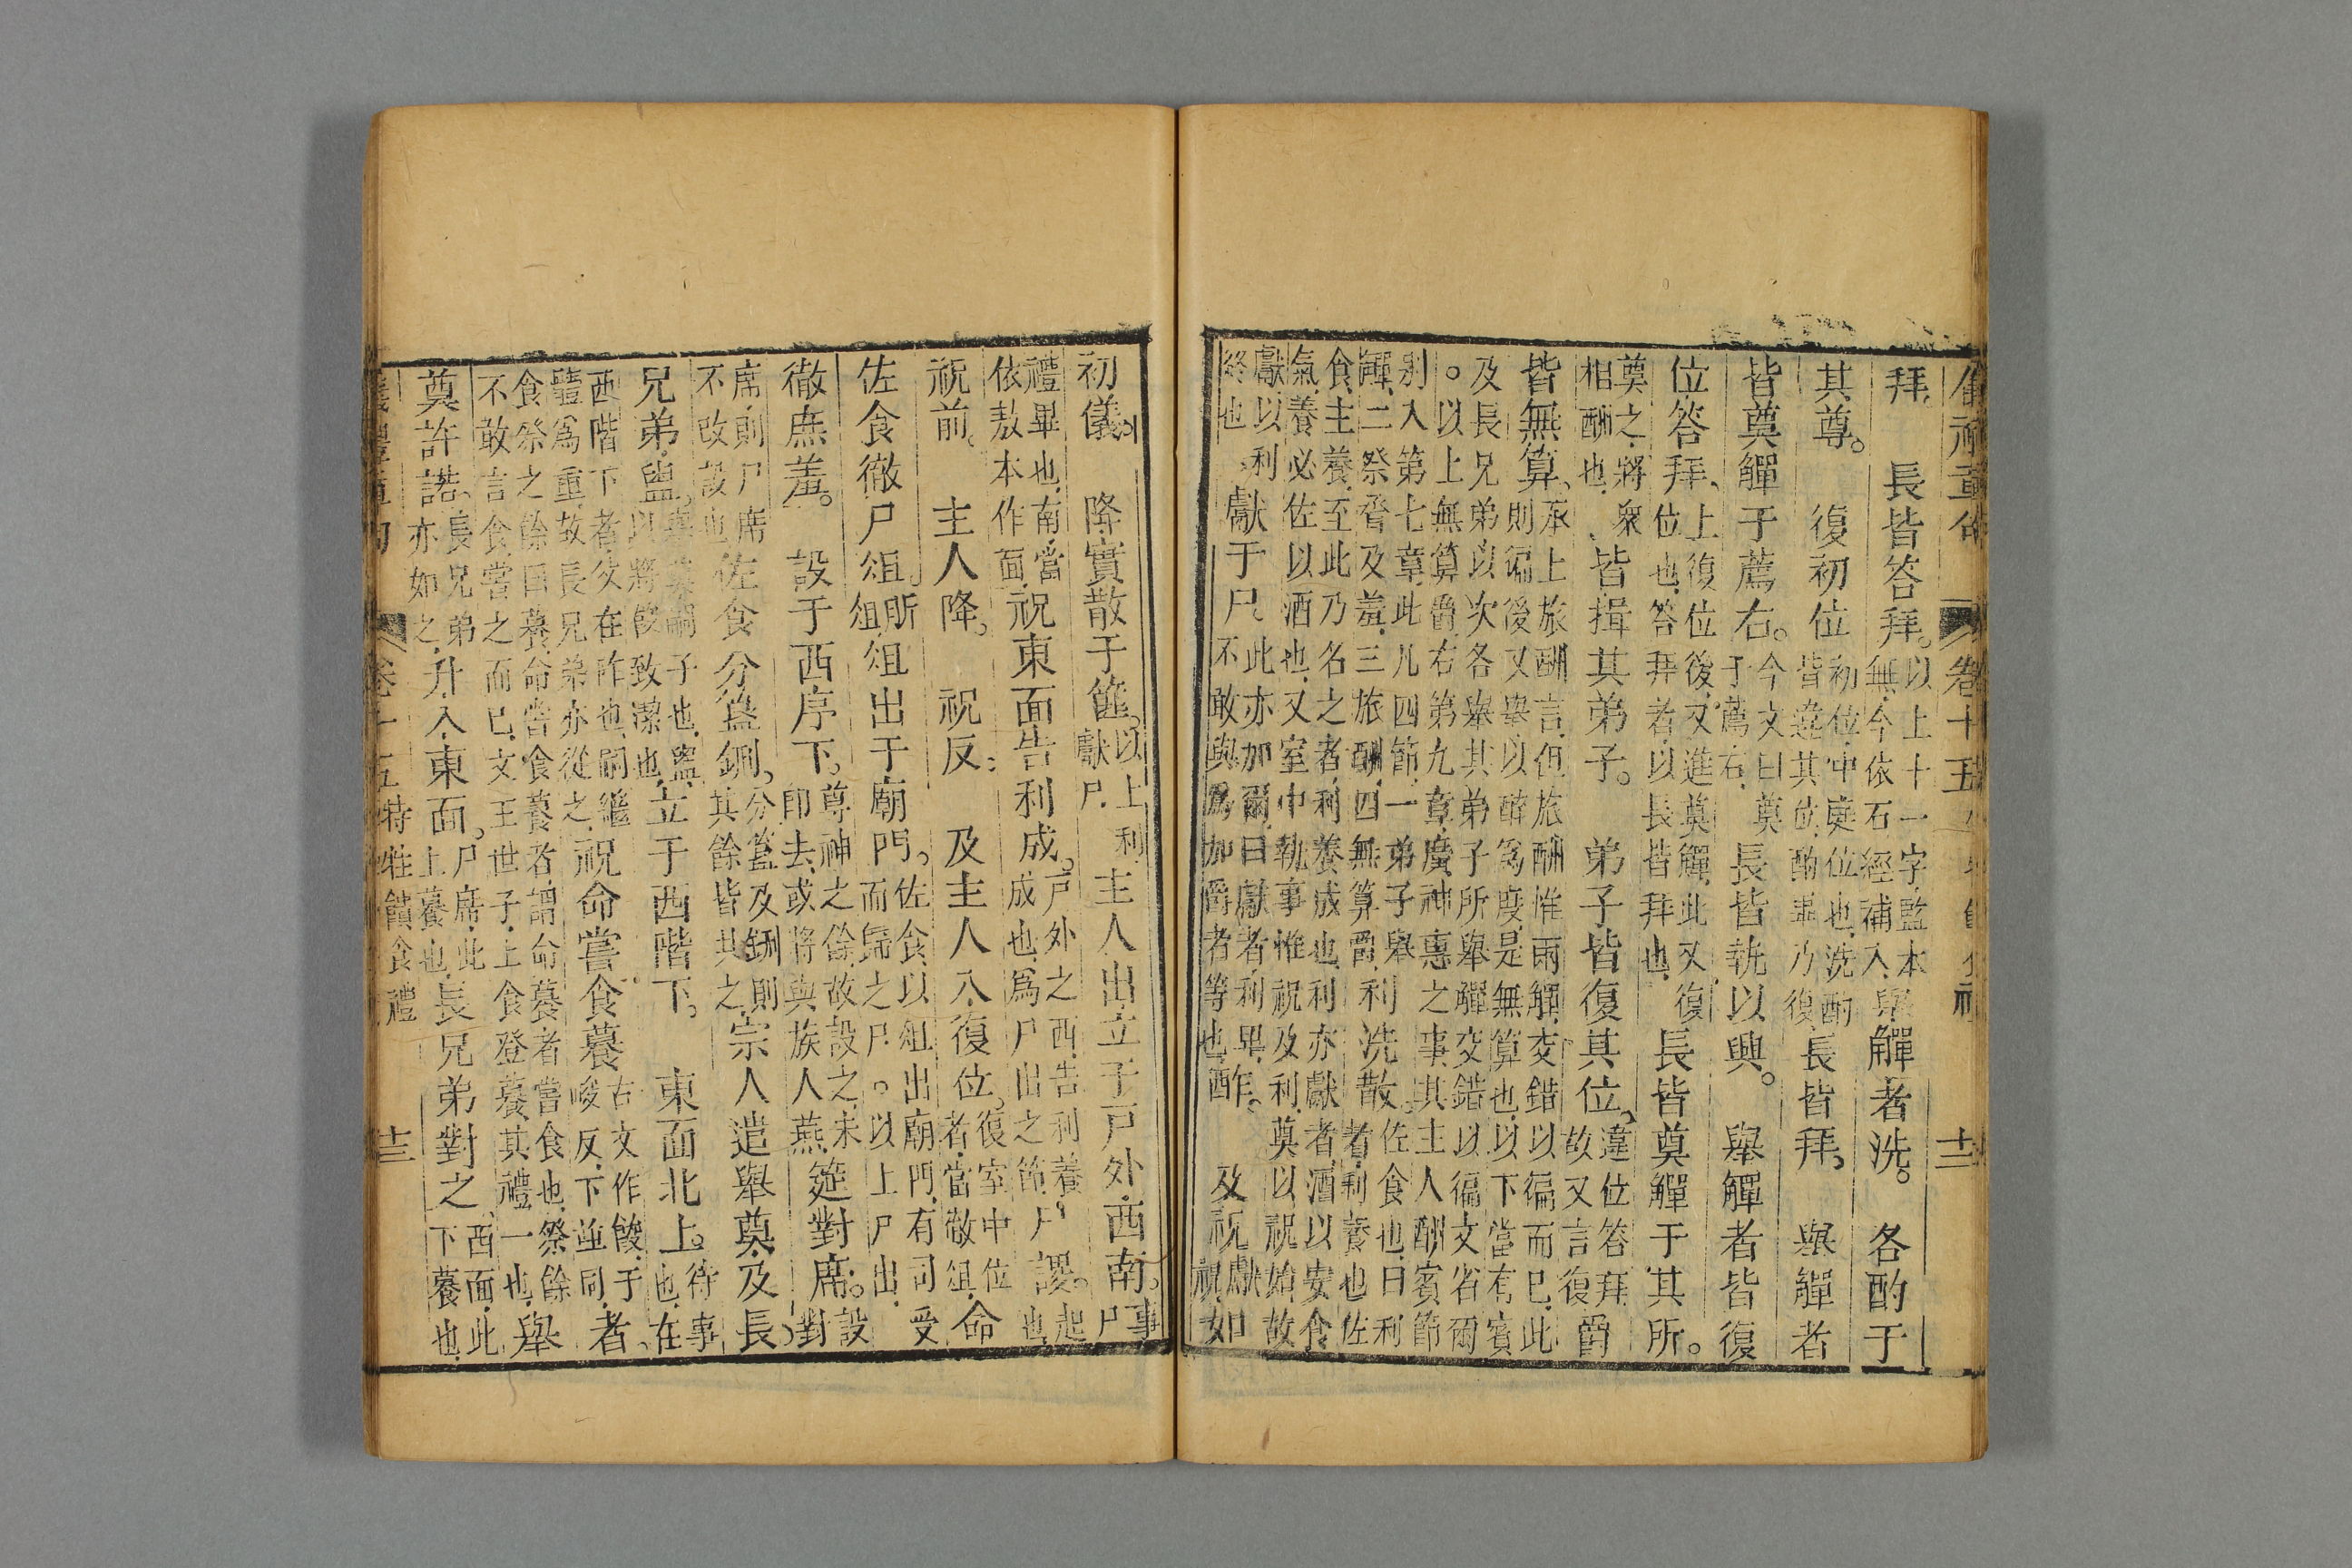 儀禮章句 卷十五 十二
拜。 長皆答拜。以上十一字監本無今依石經補入 舉觶者洗。 各酌于
其尊。 復初位 初位中庭位也洗酌皆違其故酌畢乃復 長皆拜。 舉觶者
皆奠觶于薦右。今文曰奠于薦右 長皆執以興。 舉觶者皆復
位答拜。上復位後又進奠觶此又復位也答拜者以長皆拜也 長皆奠觶于其所。
奠之將衆相酬也 皆揖其弟子。 弟子皆復其位。違位答拜故又言復 爵
皆無算。承上旅酬言但旅酬惟兩觶交錯以徧而已此則徧後又舉以醉爲度是無算也以下當有賓
及長兄弟以次各舉其弟子所舉觶交錯以徧文省爾。以上無算爵右第九章廣神惠之事其主人酬賓節
別入第七章此凡四節一弟子舉觶二祭脀及羞三旅酬四無算爵 利洗散。佐食也曰利者利養也佐
食主養至此乃名之者利養成也利亦獻者酒以安食氣養必佐以酒也又室中執事惟祝及利奠以祝始故
獻以利終也 獻于尸。此亦加爾曰獻者利畢不敢與爲加爵者等也 酢。 及祝獻祝如
初儀。 降實散于篚。以上利獻尸 主人出立于戶外西南。事尸
禮畢也南當依敖本作面 祝東面告利成。戶外之西告利養成也爲尸出之節 尸謖。起也
祝前。 主人降。 祝反。 及主人入復位。復室中位者當敬俎 命
佐食徹尸俎。肵俎 俎出于廟門。佐食以俎出廟門有司受而歸之尸。以上尸出
徹庶羞。 設于西序下。尊神之餘故設之未即去或將與族人燕 筵對席。設對
席則尸席不改設也 佐食分簋鉶。分簋及鉶則其餘皆共之 宗人遣舉奠及長
兄弟盥。舉奠嗣子也盥以將餕致潔也 立于西階下。 東面北上。待事也在
西階下者父在阼也嗣繼體爲重故長兄弟亦從之 祝命嘗食䕘 古文作餕于峻反下並同 者。
食祭之餘曰䕘命嘗食䕘者謂命䕘者嘗食也祭餘不敢言食嘗之而已文王世子上食登䕘其禮一也 舉
奠許諾。長兄弟亦如之 升入東面。尸席此上䕘也 長兄弟對之 西面此下䕘也
儀禮章句 卷十五 特牲饋食禮 十三